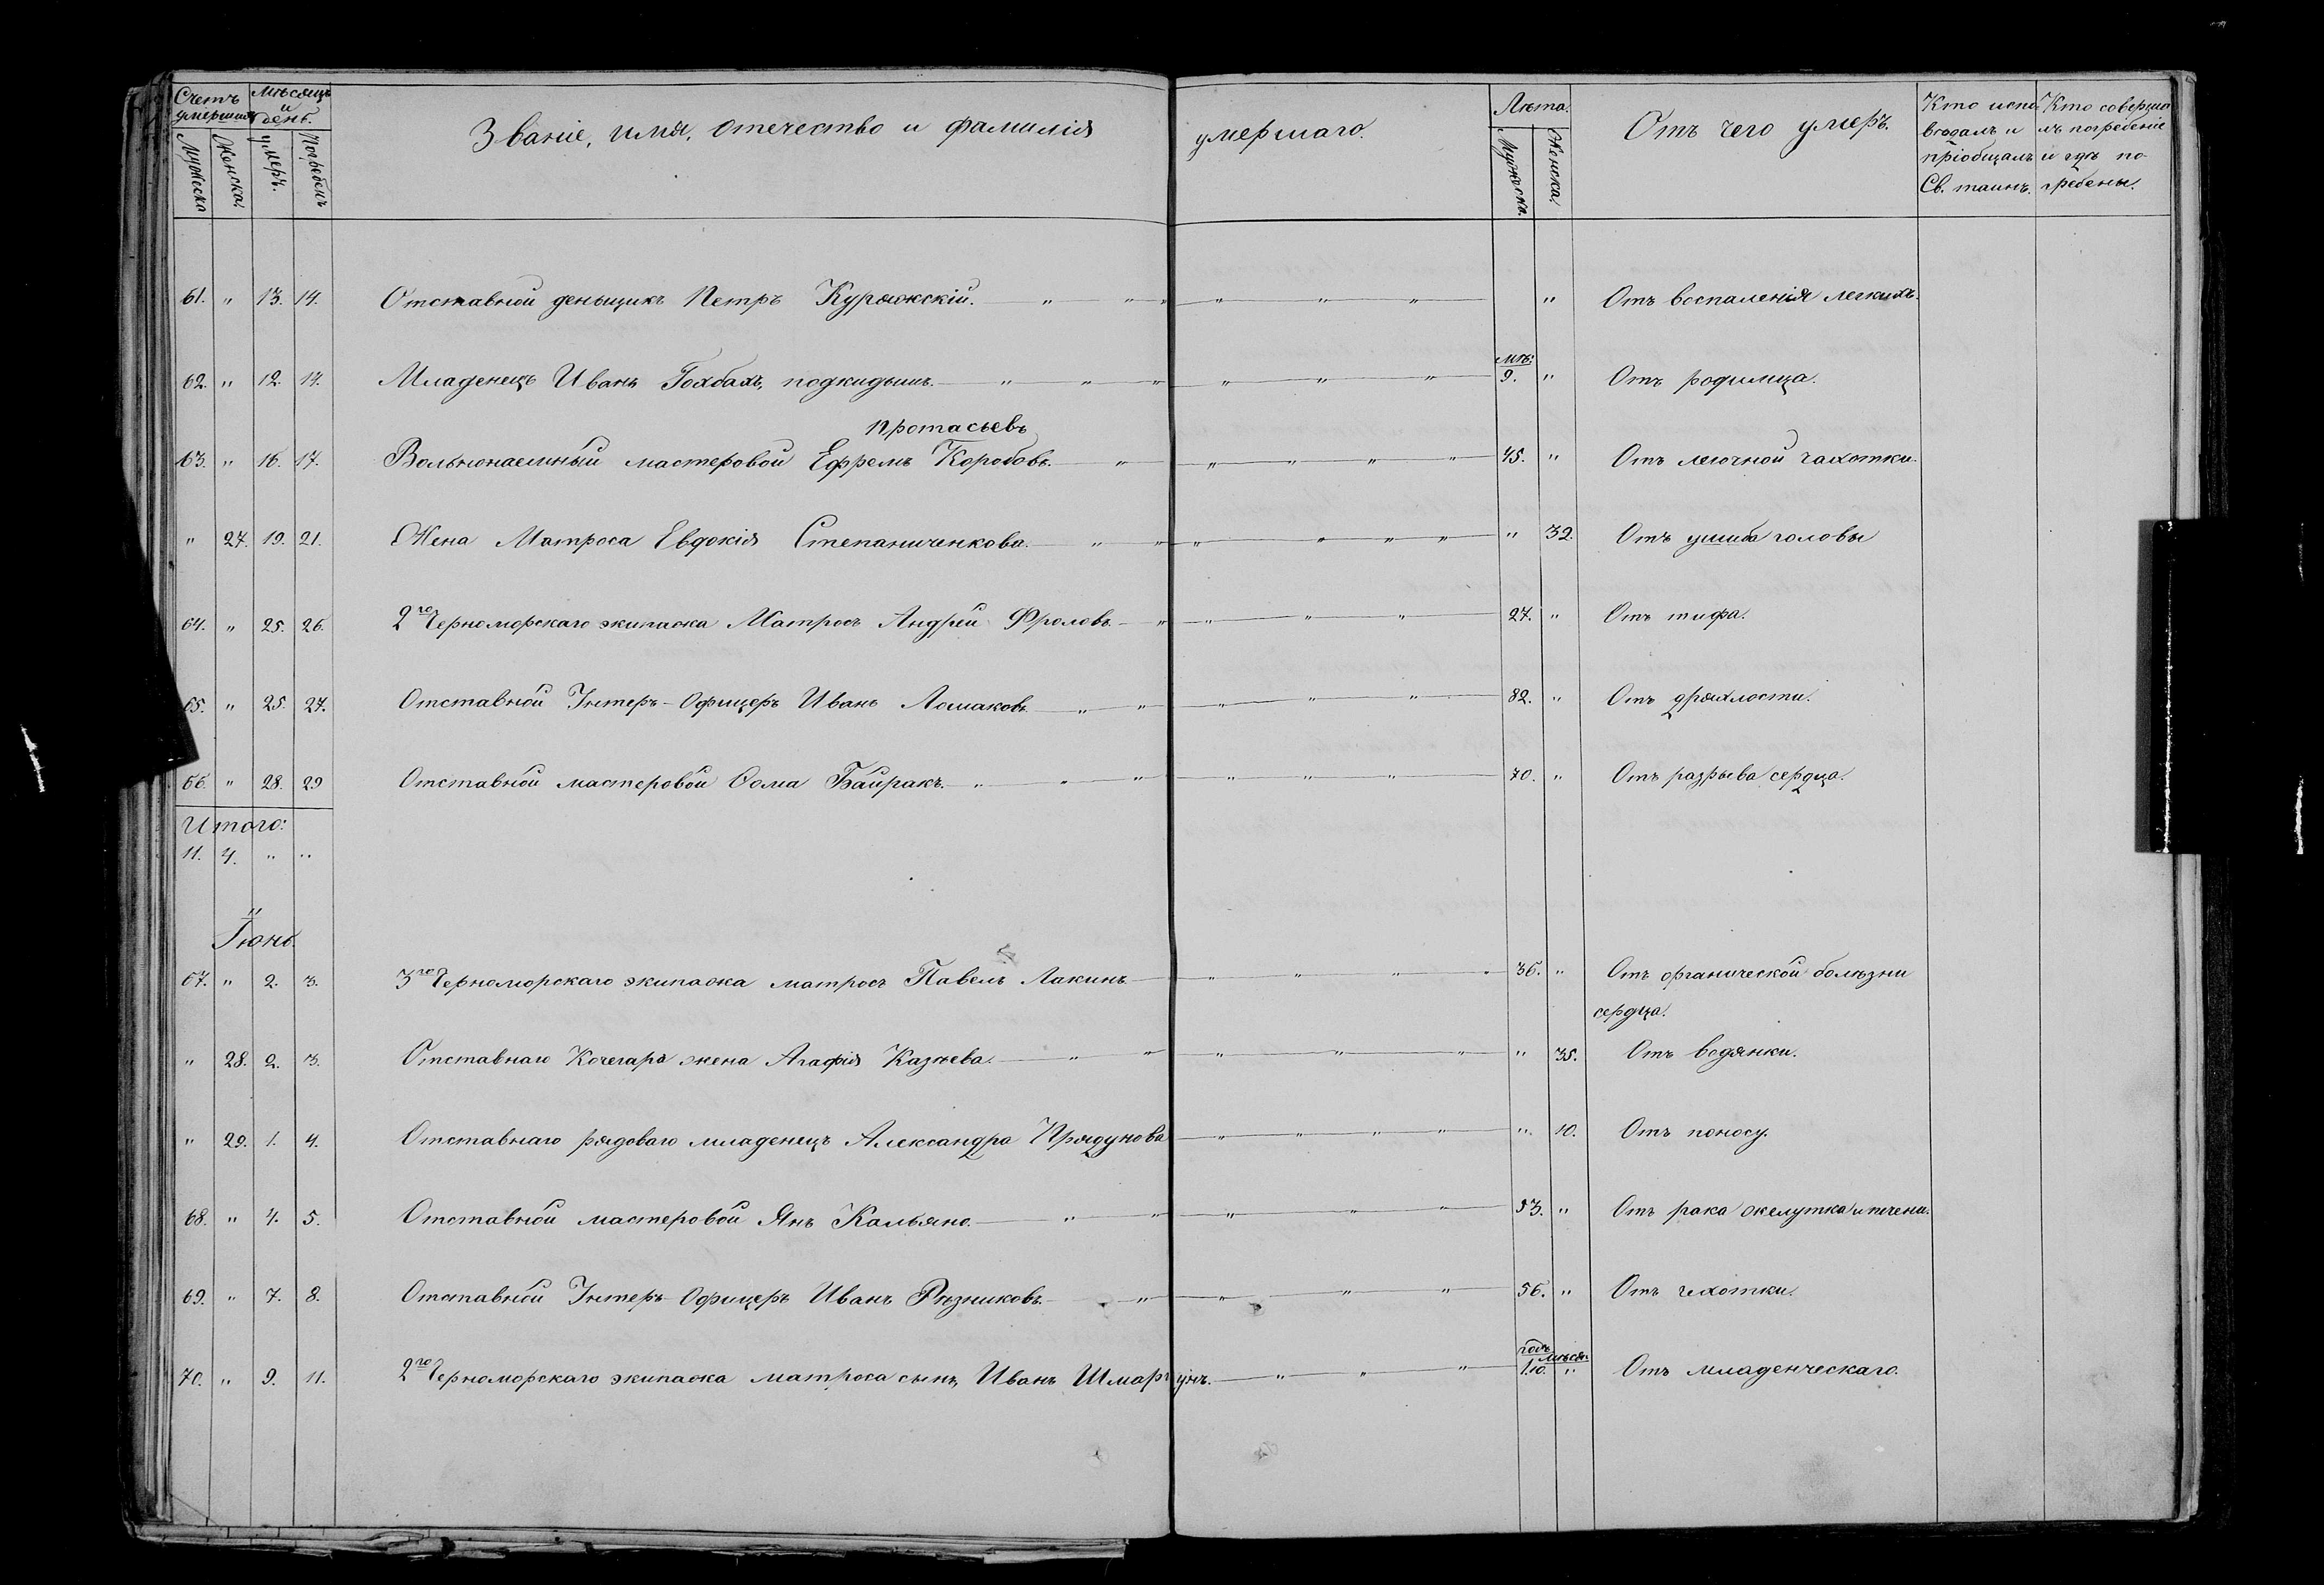 Счетъ умершихъ
Мѣсяцъ и день.
Званіе, имя, отечество и фамилія умершаго.
Лѣта.
Отъ чего умеръ.
Кто испо- Кто соверша
вѣдалъ и лъ погребеніе
пріобщалъ и гдѣ по-
Св. таинъ. гребены.
Мужеска Женска. умеръ. Погребенъ
Мужеска. Женска.
61. " 13. 14. Отставной деньщикъ Петръ Куряжскій. " " " " " " " Отъ воспаленія легкихъ.
мѣ:
62. " 12. 14. Младенецъ Иванъ Гохбахъ, подкидышъ. " " " " " " 9. " Отъ родимца.
Протасьевъ
63. " 16. 17. Вольнонаемный мастеровой Ефремъ Коробовъ. " " " " " 45. " Отъ легочной чахотки.
" 27. 19. 21. Жена Матроса Евдокія Степаниченкова. " " " " " " " 32. Отъ ушиба головы
64. " 25. 26. 2го Черноморскаго экипажа Матросъ Андрей Фроловъ. " " " " 27. " Отъ тифа.
65. " 25. 27. Отставной Унтеръ-Офицеръ Иванъ Ломаковъ. " " " " " 82. " Отъ дряхлости.
66. " 28. 29 Отставной мастеровой Ѳома Байракъ. " " " " " " 70. " Отъ разрыва сердца.
Итого:
11. 4. " "
Іюнь.
67. " 2. 3. 3го Черноморскаго экипажа матросъ Павелъ Лакинъ " " " " 36. " Отъ органической болѣзни
сердца.
" 28. 2. 3. Отставнаго Кочегара жена Агафія Казнева. " " " " " " 35. Отъ водянки.
" 29. 1. 4. Отставнаго рядоваго младенецъ Александра Прядунова " " " " " 10. Отъ поносу.
68. " 4. 5. Отставной мастеровой Янъ Кальяно. " " " " " 53. " Отъ рака желутка и печени.
69. " 7. 8. Отставной Унтеръ-Офицеръ Иванъ Рѣзниковъ. " " " " 56. " Отъ чахотки.
годъ мѣся:
70. " 9. 11. 2го Черноморскаго экипажа матроса сынъ, Иванъ Шмаргунъ. " " " 1.10. " Отъ младенческаго.